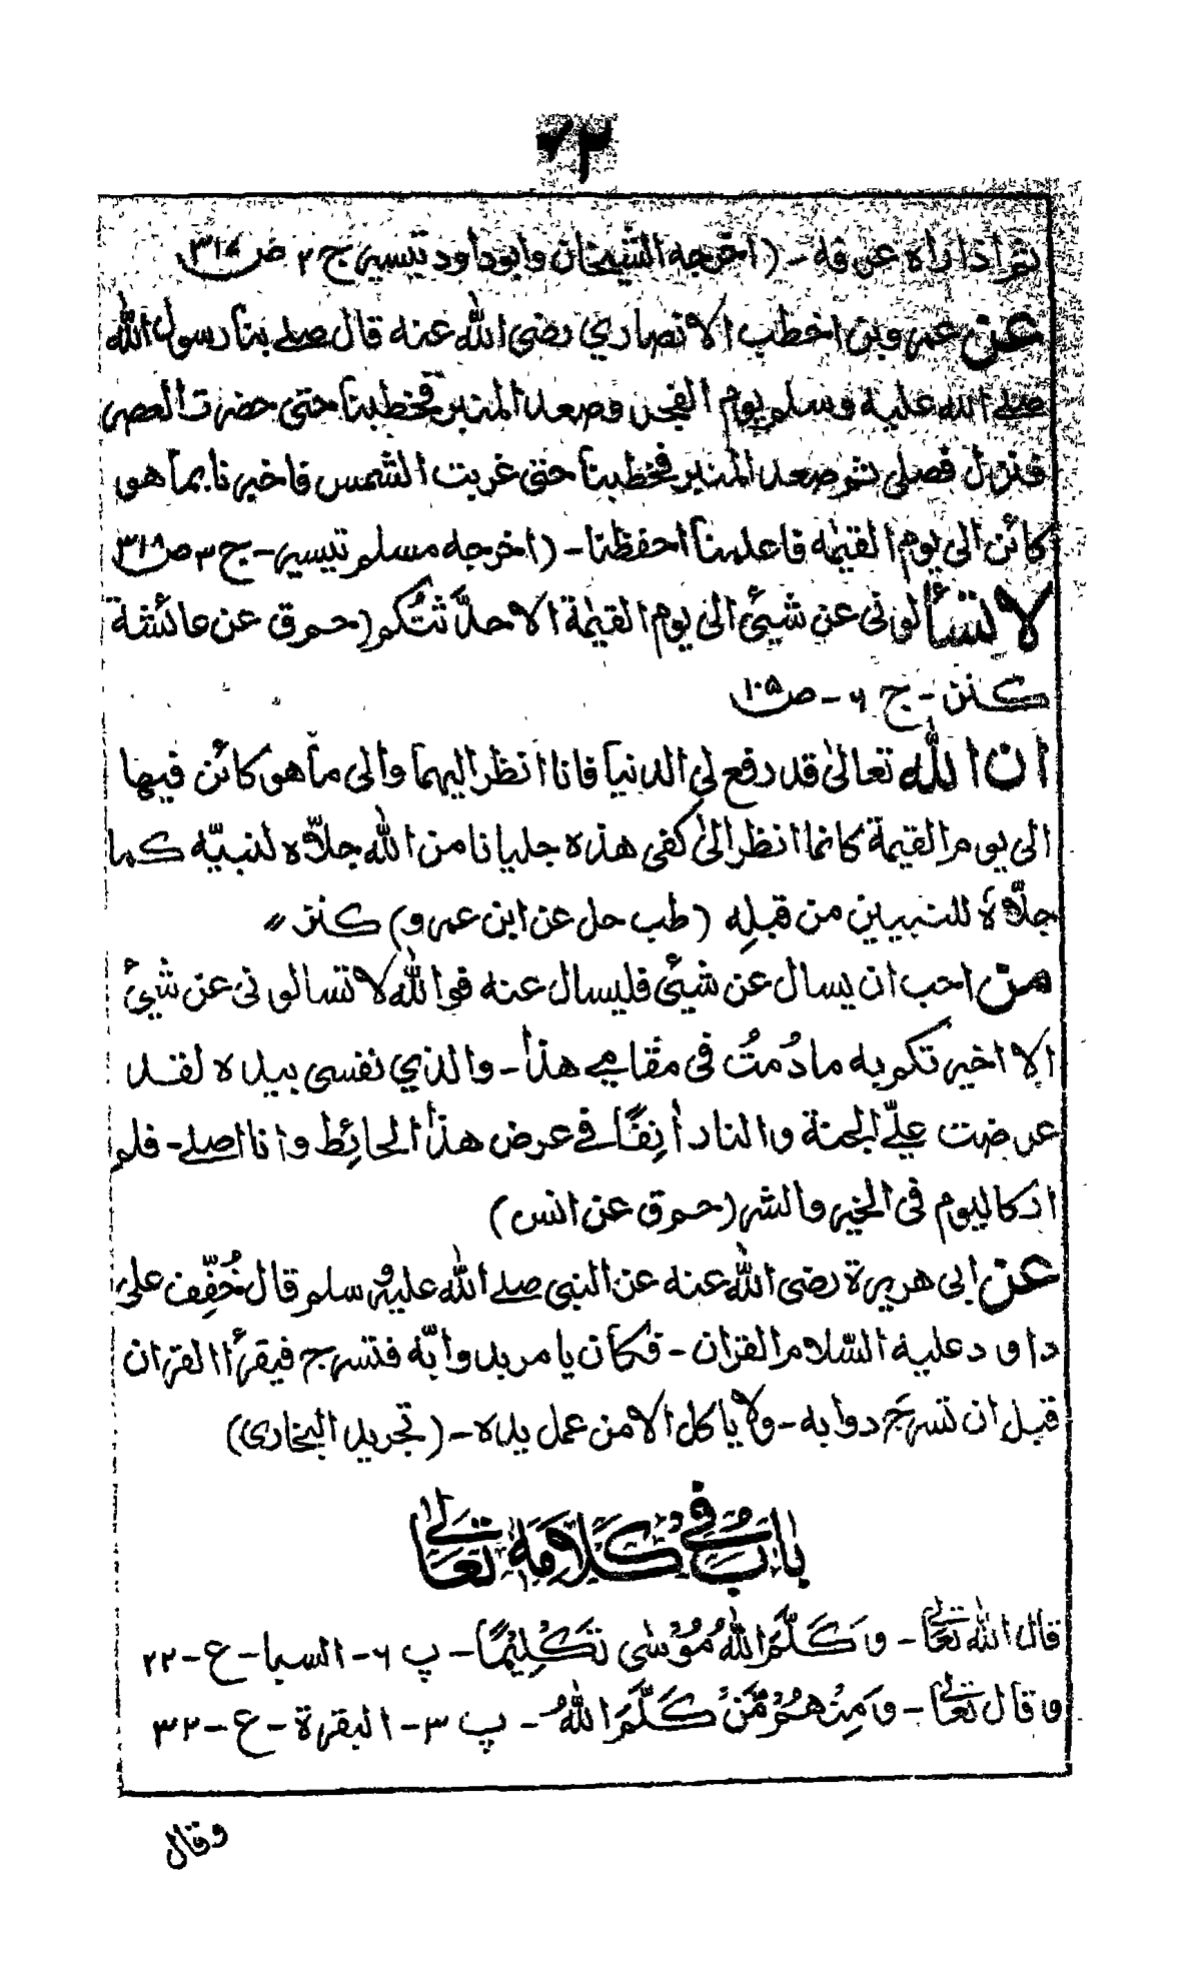 ثم اذا راه عرفه - (اخرجه الشيخان وابوداود تيسير ج ٣ ص ٣١٧
عن عمروبن اخطب الانصاري رضى الله عنه قال صلے بنا رسول الله
صلے الله عليه وسلم يوم الفجر وصعد المنبر فخطبنا حتى حضرت العصر
فنزل فصلى ثم صعد المنبر فخطبنا حتى غربت الشمس فاخبرنا بما هو
كائن الى يوم القيٰمه فاعلمنا احفظنا - (اخرجه مسلم تيسير - ج ٣ ص ٣١٨
لا تسألونى عن شيئ الى يوم القيٰمة الا حدّثتُكم (حم ق عن عائشة
كنز - ج ٦ - ص ١٠٥
ان الله تعالىٰ قد رفع لى الدنيا فانا انظر اليهما والى ما هو كائن فيها
الى يوم القيمة كانما انظر الىٰ كفى هذه جليانا من الله جلّاه لنبيّه كما
جلّاهَ للنبيين من قبلِه (طب حل عن ابن عمرو) كنز ״
من احب ان يسال عن شيئ فليسال عنه فوالله لا تسالونى عن شيئ
الا اخبرتكم به مادُمتُ فى مقامے هذا - والذي نفسى بيده لقد
عرضت علےّ الجنة والنار اٰنِفًا فے عرض هذا الحائِط وانا اصلے - فلم
ار كاليوم فى الخير والشر (حم ق عن انس)
عن ابى هريرة رضى الله عنه عن النبى صلے الله عليه وسلم قال خُفِّف علىٰ
داود عليه السّلام القران - فكان يامر بدوابّه فتسرج فيقرأ القران
قبل ان تسرَج دوابه - ولا ياكل الا من عمل يده - (تجريد البخارى)
بابٌ فے كَلَامِه تعالےٰ
قال الله تعالےٰ - وَكَلَّمَ اللهُ مُوْسٰى تَكْلِيْمًا - پ ٦ - النسا - ع - ٢٢
وقال تعالےٰ - وَمِنْهُمْ مَّنْ كَلَّمَ اللهُ - پ ٣ - البقرة - ع - ٣٢
وقال